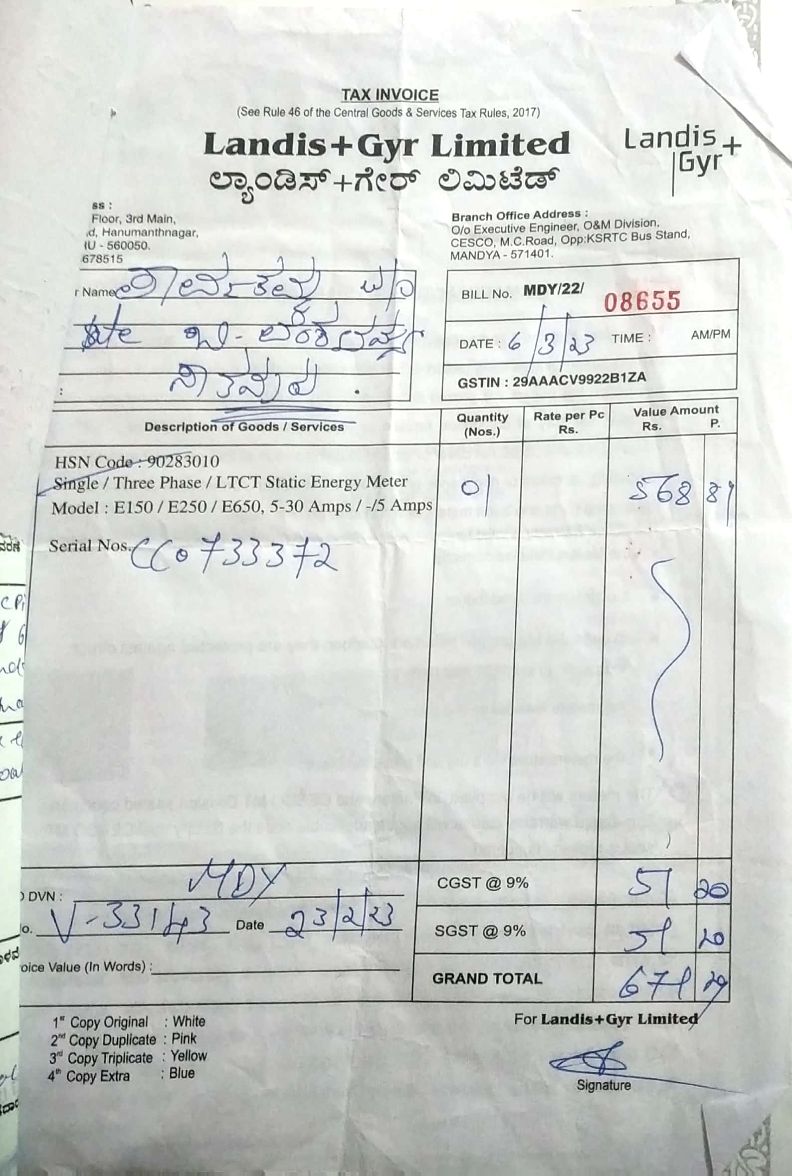 TAX INVOICE
(See Rule 46 of the Central Goods & Services Tax Rules, 2017)
Landis+Gyr Limited
ಲ್ಯಾಂಡಿಸ್+ಗೇರ್ ಲಿಮಿಟೆಡ್
Landis+
Gyr
ss :
Floor, 3rd Main,
d, Hanumanthnagar,
- 560050.
678515
Branch Office Address :
O/o Executive Engineer, O&M Division,
CESCO, M.C.Road, Opp:KSRTC Bus Stand,
MANDYA - 571401.
r Name
BILL No. MDY/22/ 08655
DATE : 6/3/23 TIME : AM/PM
: GSTIN : 29AAACV9922B1ZA
Description of Goods / Services Quantity (Nos.) Rate per Pc Rs. Value Amount Rs. P.
HSN Code : 90283010
Single / Three Phase / LTCT Static Energy Meter 01 568 89
Model : E150 / E250 / E650, 5-30 Amps / -/5 Amps
Serial Nos. CC0733372
DVN : MDY CGST @ 9% 51 20
o. V-33143 Date 23/2/23 SGST @ 9% 51 20
oice Value (In Words) : GRAND TOTAL 671 29
1st Copy Original : White
2nd Copy Duplicate : Pink
3rd Copy Triplicate : Yellow
4th Copy Extra : Blue
For Landis+Gyr Limited
Signature